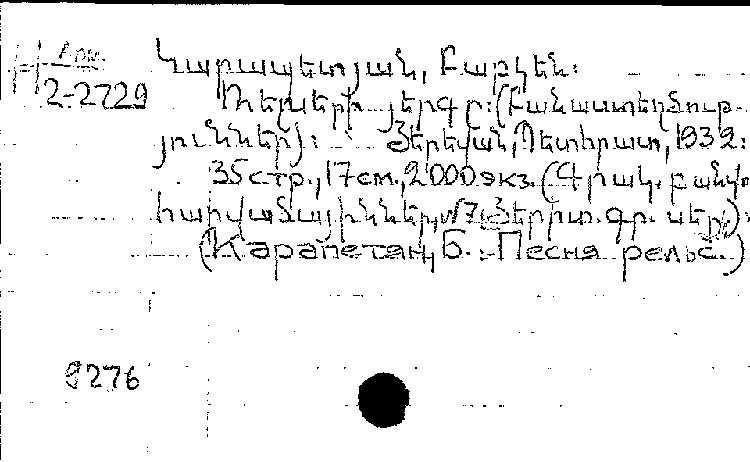 Կարապետյան, Բաբկեն։
2-2729
Ռելսերի յերգը։ (Բանաստեղծութ-
յուններ)։ Յերևան, Պետհրատ, 1932։
35 стр., 17 см., 2000 экз. (Գրակ. բանվ.
հարվածայիններ, №7, Յերիտ. գր. սեր.)։
(Карапетян, Б. : Песня рельс.)
9276